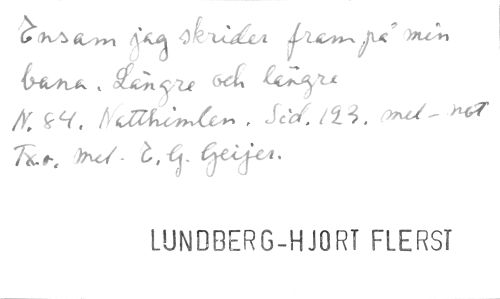 Ensam jag skrider fram på min
bana. Längre och längre
N. 84. Natthimlen. Sid. 123. mel-not
Tx.o. mel. E. G. Geijer.
LUNDBERG-HJORT FLERST